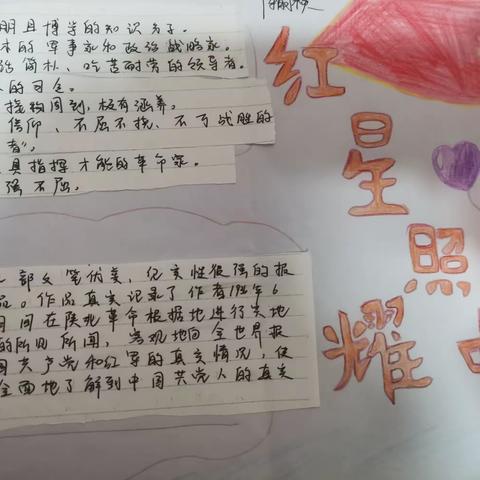 明且博学的知识分子。
的军事家和政治战略家。
简朴、吃苦耐劳的领导者。
的司令。
周到,极有涵养。
信仰、不屈不挠、不可战胜的
者》。
具指挥才能的革命家。
强不屈。
部文笔优美,纪实性很强的报
品。作品真实记录了作者1936年6
月间在陕北革命根据地进行实地
的所见所闻,客观地向全世界报
国共产党和红军的真实情况,使
全面地了解到中国共党人的真实
红
星
照
耀